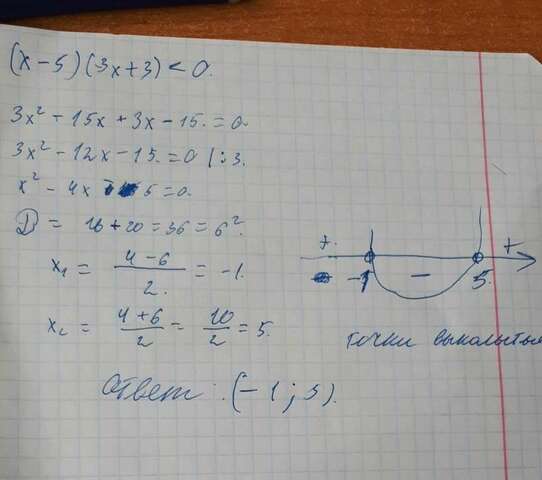 (x-5)(3x+3)<0.
3x² - 15x + 3x - 15. = 0.
3x² - 12x - 15. = 0 | : 3.
x² - 4x - 5 = 0.
D = 16 + 20 = 36 = 6².
x₁ = (4-6)/2. = -1.
x₂ = (4+6)/2 = 10/2 = 5.
+. - +
-1 5.
точки выколотые
Ответ: (-1; 5).